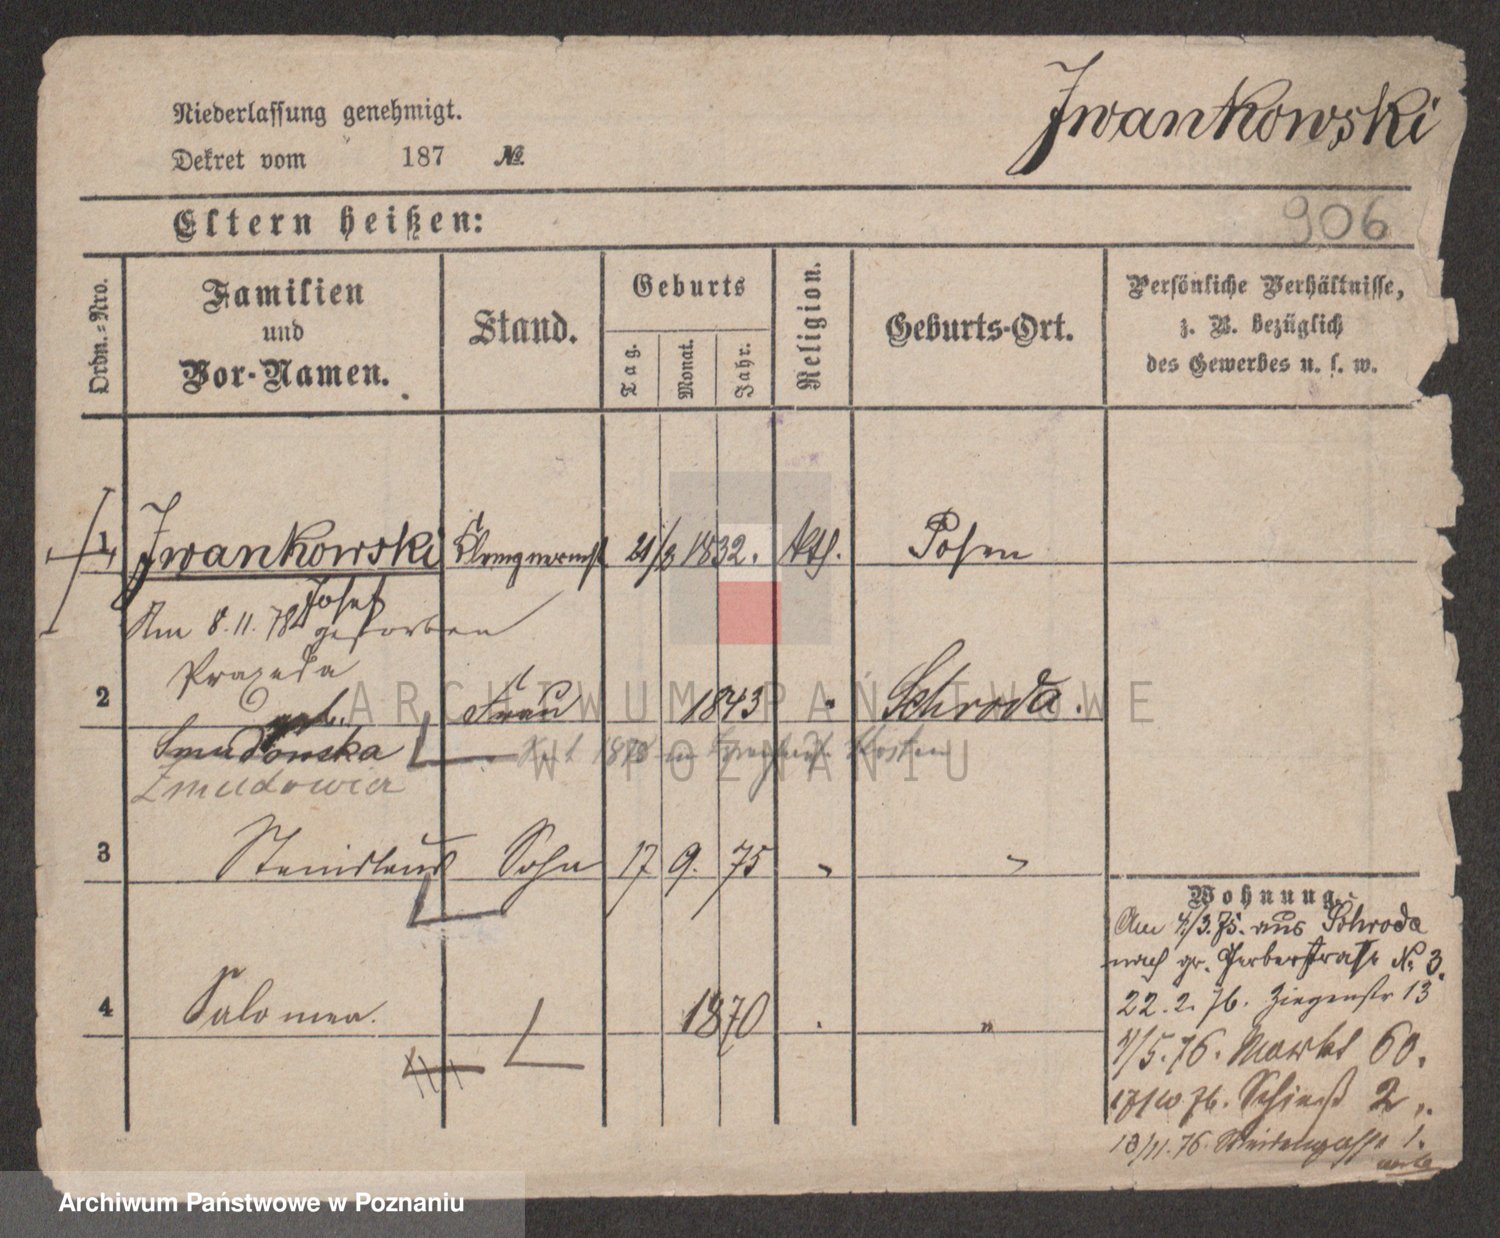 Niederlassung genehmigt.
Dekret vom 187 №
Iwankowski
Eltern heißen:
906
Ordn.-Nro.
Familien
und
Vor-Namen.
Stand.
Geburts
Tag.
Monat.
Jahr.
Religion.
Geburts-Ort.
Persönliche Verhältnisse,
z. B. bezüglich
des Gewerbes u. s. w.
1 Iwankowski 21/3 1832. kth. Posen
Josef
Am 8.11.78 gestorben
Praxeda
2 Frau 1843 " Schroda.
geb.
Smudowska
Zmudowicz
3 Stanislaus Sohn 17 9. 75 " "
4 Salomea. 1870 " "
Wohnung.
Am 4/3.75. aus Schroda
nach gr. Gerberstraße No 3.
22.2.76. Ziegenstr 13
1/5.76. Markt 60.
17/10 76. Schieß 2.
13/11.76. 1.
ARCHIWUM PAŃSTWOWE
W POZNANIU
Archiwum Państwowe w Poznaniu